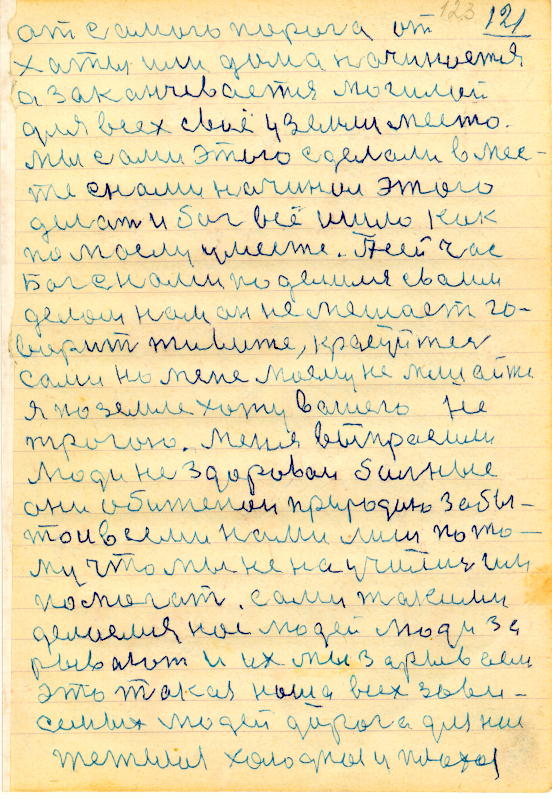 123 121
ат самого порога от
хаты или дома начинается
а заканчевается могилай
для всех своё у земли место.
мы сами этого сделали вмес-
те снами начинал этого
делат и бог всё ишло как
по моему уместе. Пей час
Бог снами поделился сваим
делом нам он не мешает го-
ворит живите, красуйтея
сами но мене моему не мишайте
я поземле хожу вашего не
трогаю. Меня выпрасили
люди не здоровои больные
они обиженои природию забы-
тои всеми нами лиш пото-
му что мы не научились им
помогат. сами такими
делаемся нас людей люди за
рывают и их мы зарываем
это такая наша всех зави-
семых людей дорога для нис
тяжелая холодная и плохая